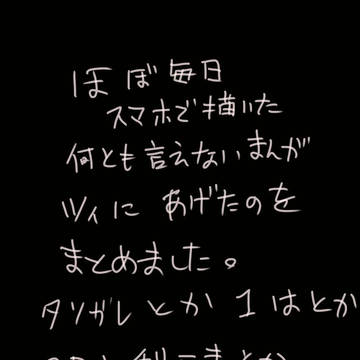 ほぼ毎日
スマホで描いた
何とも言えないまんが
ツイにあげたのを
まとめました。
タソガレとか1はとか